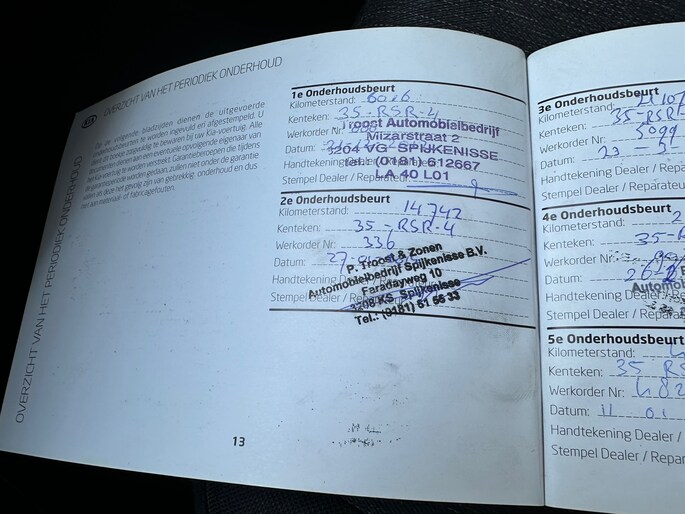 OVERZICHT VAN HET PERIODIEK ONDERHOUD
OVERZICHT VAN HET PERIODIEK ONDERHOUD
Op de volgende bladzijden dienen de uitgevoerde
onderhoudsbeurten te worden ingevuld en afgestempeld. U
dient dit boekje zorgvuldig te bewaren bij uw Kia-voertuig. Alle
het Kia-voertuig te worden verstrekt. Garantieberoepen die tijdens
de garantieperiode worden gedaan, zullen niet onder de garantie
vallen als deze het gevolg zijn van gebrekkig onderhoud en dus
niet aan materiaal- of fabricagefouten.
13
1e Onderhoudsbeurt
Kilometerstand: 6016
Kenteken: 35-RSR-4
Werkorder Nr:
Datum:
Handtekening
Stempel Dealer / Reparateur
Troost Automobielbedrijf
Mizarstraat 2
3204 VG SPIJKENISSE
tel. (0181) 612667
LA 40 L01
2e Onderhoudsbeurt
Kilometerstand: 14742
Kenteken: 35-RSR-4
Werkorder Nr: 336
Datum: 27
Handtekening Dealer
Stempel Dealer /
P. Troost & Zonen
Automobielbedrijf Spijkenisse B.V.
Faradayweg 10
3208 KS Spijkenisse
Tel.: (0181) 61 56 33
3e Onderhoudsbeurt
Kilometerstand:
Kenteken: 35-RSR
Werkorder Nr: 5099
Datum: 23
Handtekening Dealer /
Stempel Dealer / Reparateu
4e Onderhoudsbeurt
Kilometerstand: 2
Kenteken: 35-R
Werkorder Nr:
Datum:
Handtekening Dealer
Stempel Dealer / Repara
Automob
5e Onderhoudsbeurt
Kilometerstand:
Kenteken: 35 RS
Werkorder Nr:
Datum: 11 01
Handtekening Dealer /
Stempel Dealer / Repar